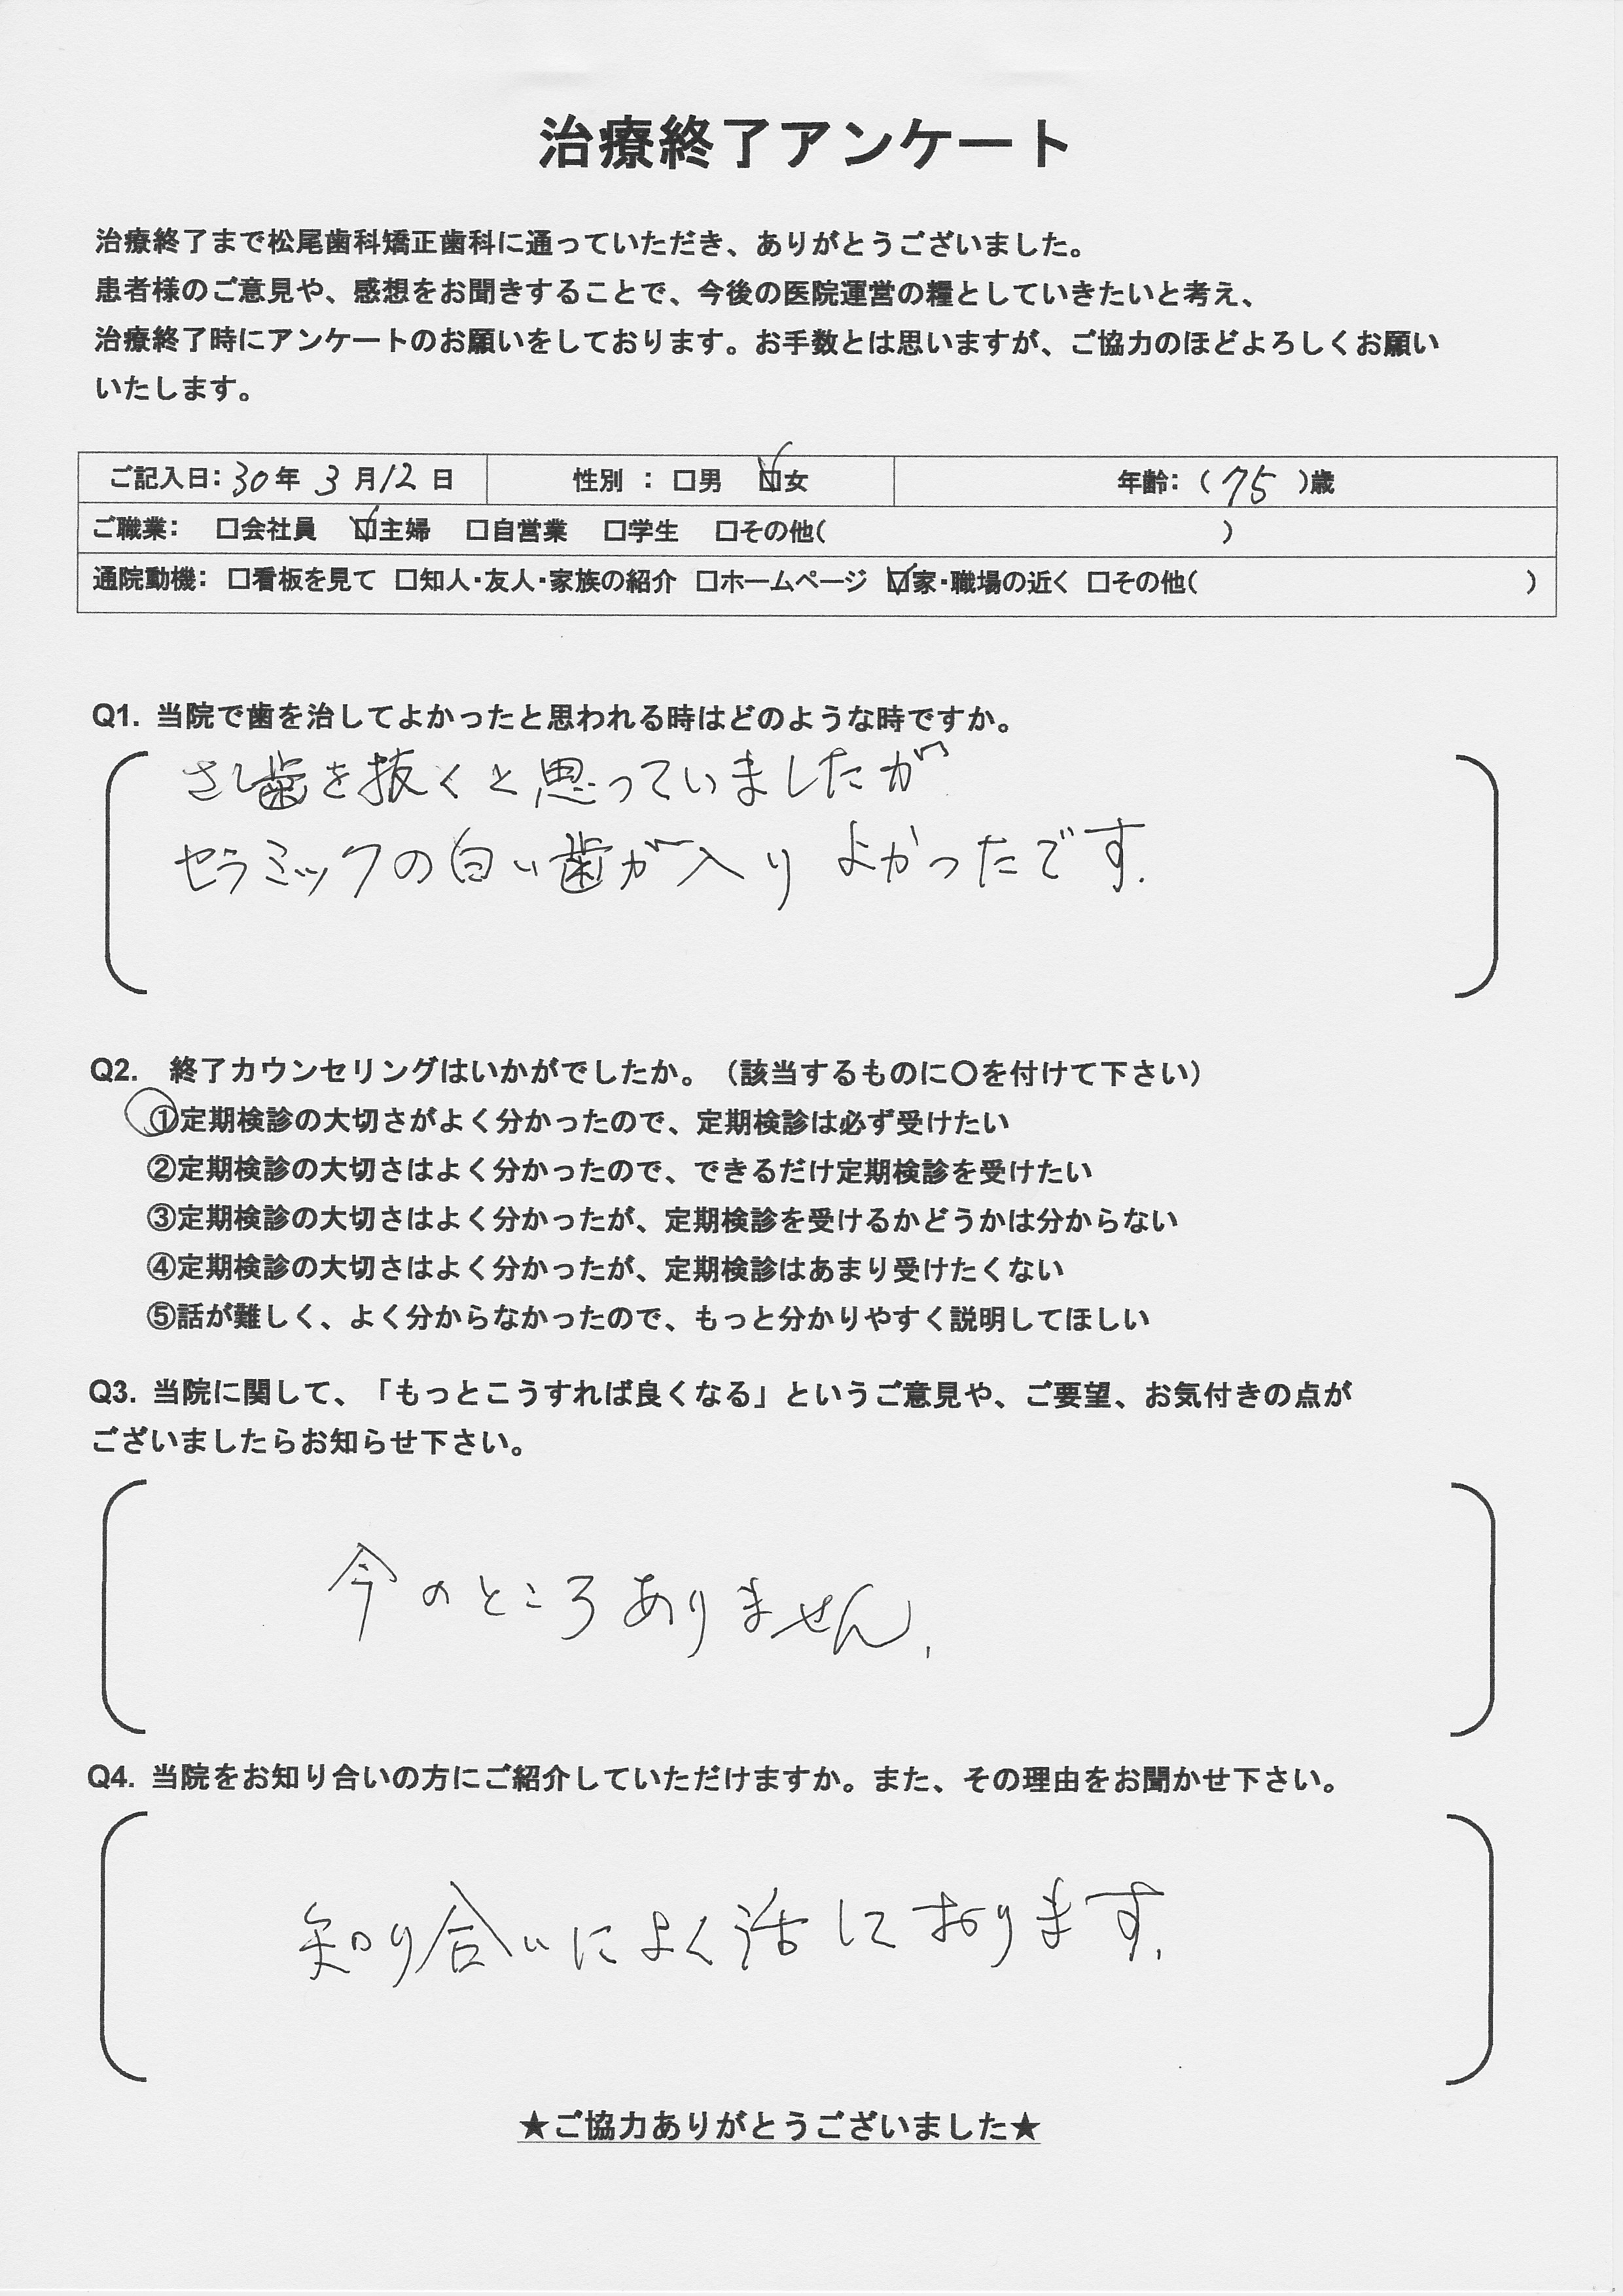 治療終了アンケート
治療終了まで松尾歯科矯正歯科に通っていただき、ありがとうございました。
患者様のご意見や、感想をお聞きすることで、今後の医院運営の糧としていきたいと考え、
治療終了時にアンケートのお願いをしております。お手数とは思いますが、ご協力のほどよろしくお願い
いたします。
ご記入日：30年 3月12日 性別 ： □男 ☑女 年齢：（75）歳
ご職業： □会社員 ☑主婦 □自営業 □学生 □その他( )
通院動機： □看板を見て □知人・友人・家族の紹介 □ホームページ ☑家・職場の近く □その他( )
Q1. 当院で歯を治してよかったと思われる時はどのような時ですか。
さし歯を抜くと思っていましたが
セラミックの白い歯が入り よかったです.
Q2. 終了カウンセリングはいかがでしたか。（該当するものに〇を付けて下さい）
①定期検診の大切さがよく分かったので、定期検診は必ず受けたい
②定期検診の大切さはよく分かったので、できるだけ定期検診を受けたい
③定期検診の大切さはよく分かったが、定期検診を受けるかどうかは分からない
④定期検診の大切さはよく分かったが、定期検診はあまり受けたくない
⑤話が難しく、よく分からなかったので、もっと分かりやすく説明してほしい
Q3. 当院に関して、「もっとこうすれば良くなる」というご意見や、ご要望、お気付きの点が
ございましたらお知らせ下さい。
今のところありません.
Q4. 当院をお知り合いの方にご紹介していただけますか。また、その理由をお聞かせ下さい。
知り合いによく話しております.
★ご協力ありがとうございました★